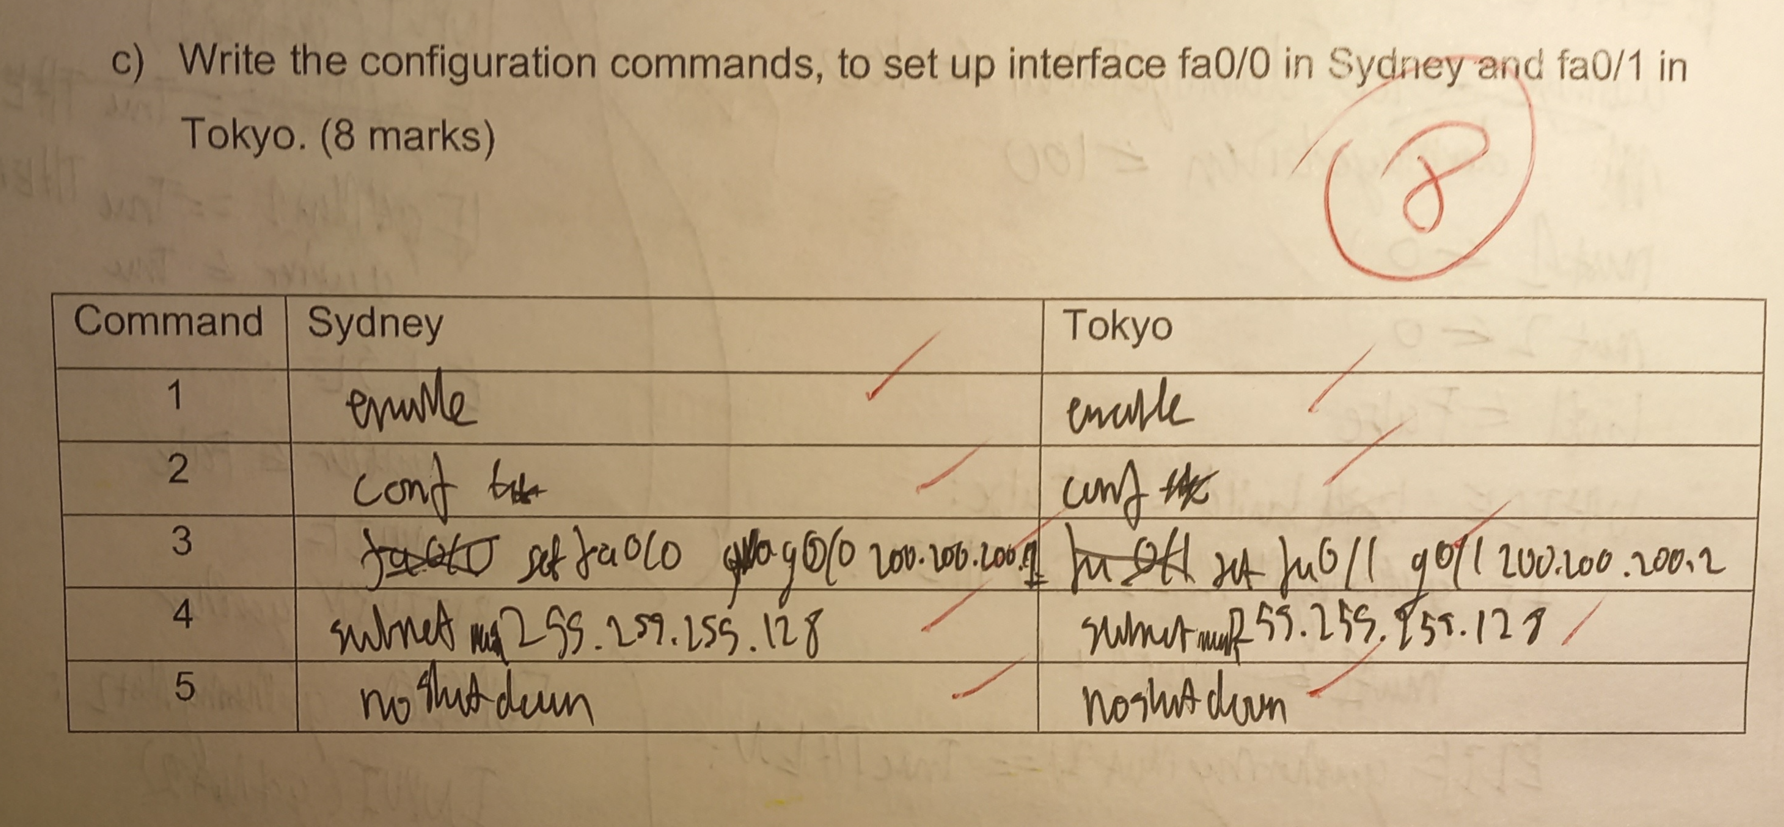 c) Write the configuration commands, to set up interface fa0/0 in Sydney and fa0/1 in
Tokyo. (8 marks)
8
Command Sydney Tokyo
1 enable enable
2 conf conf
3 set fa0/0 g0/0 200.200.200.1 set fa0/1 g0/1 200.200.200.2
4 subnet 255.259.255.128 subnet 255.255.255.128
5 no shutdown no shutdown